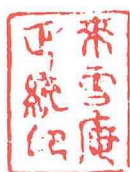 来雪庵
正統印